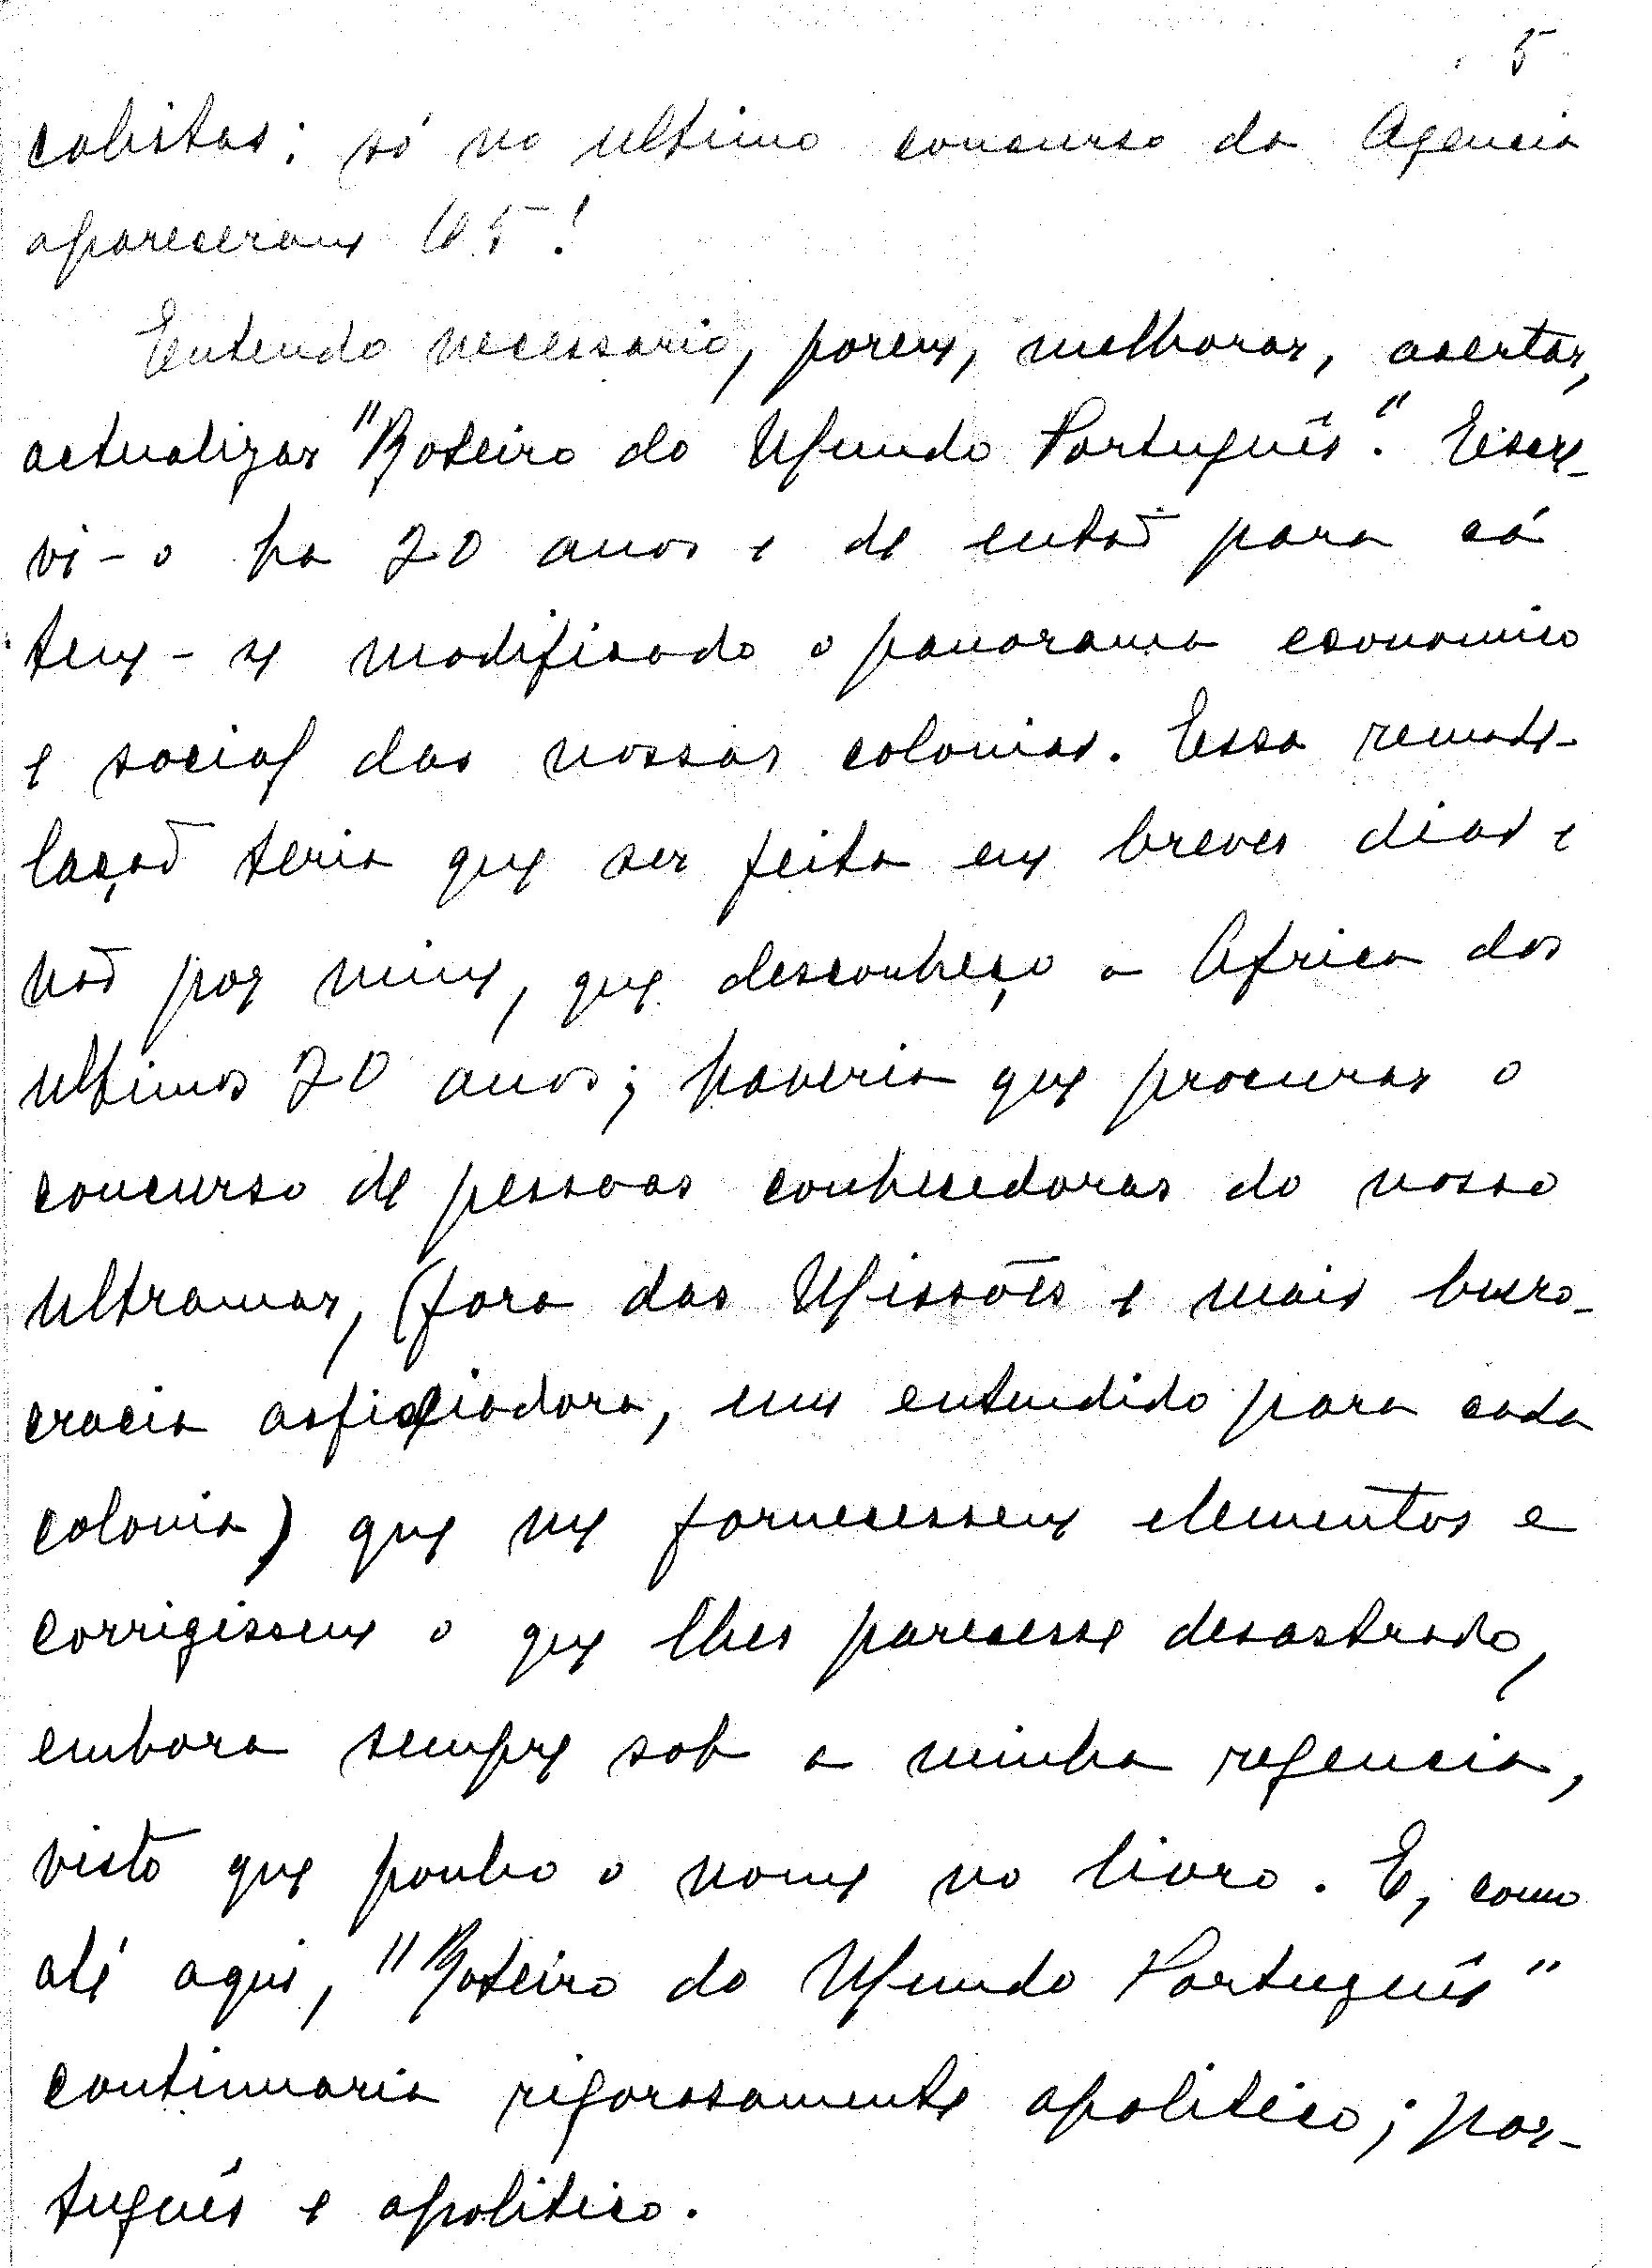 5
colistas; só no ultimo concurso da Agencia
apareceram 65!
Entendo necessario, porem, melhorar, acertar,
actualizar "Roteiro do Mundo Português". Escre-
vi-o ha 20 anos e de entaõ para cá
tem-se modificado o panorama economico
e social das nossas colonias. Essa remode-
laçaõ teria que ser feita em breves dias e
naõ por mim, que desconheço a Africa dos
ultimos 20 anos; haveria que procurar o
concurso de pessoas conhecedoras do nosso
ultramar, (fora das Missões e mais buro-
cracia asfixiadora, um entendido para cada
colonia) que me fornecessem elementos e
corrigissem o que lhes parecesse desastrado,
embora sempre sob a minha regencia,
visto que ponho o nome no livro. E, como
até aqui, "Roteiro do Mundo Português"
continuaria rigorosamente apolitico; por-
tuguês e apolitico.